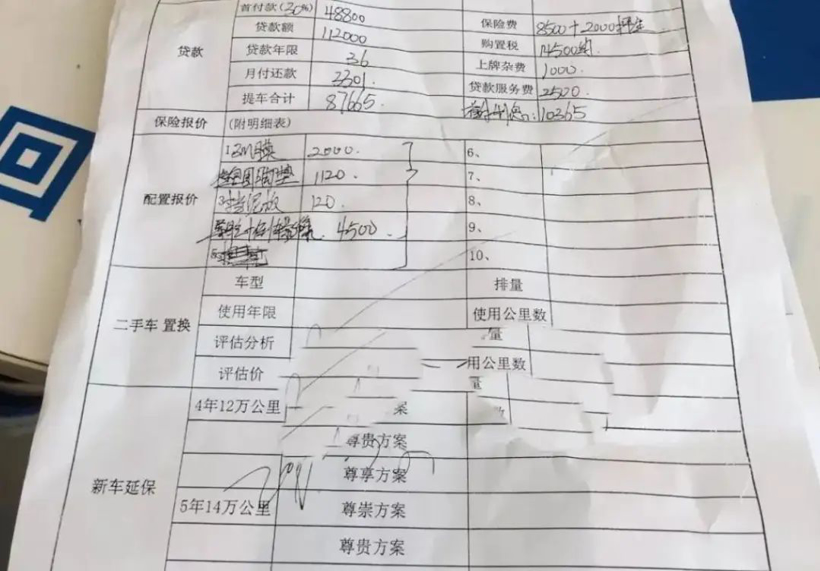 首付款(30%) 48800
贷款
贷款额 112000
贷款年限 36
月付还款 3301.
提车合计 87665.
保险费 8500+2000押金
购置税 14500
上牌杂费 1000.
贷款服务费 2500
10365
保险报价 (附明细表)
配置报价
1 3M膜 2000.
脚垫 1120.
3 挡泥板 120.
4500.
6、
7、
8、
9、
10、
二手车 置换
车型 排量
使用年限 使用公里数
评估分析 量
评估价 用公里数
量
新车延保
4年12万公里
尊贵方案
尊享方案
5年14万公里 尊崇方案
尊贵方案